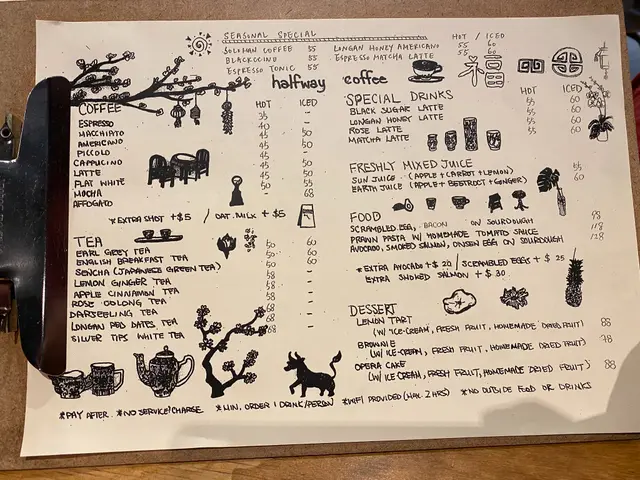 SEASONAL SPECIAL HOT / ICED
SOLOMAN COFFEE 55 LONGAN HONEY AMERICANO 55 60
BLACKOCCINO 55 ESPRESSO MATCHA LATTE 55 60
ESPRESSO TONIC 55
halfway coffee
COFFEE HOT ICED
ESPRESSO 35 -
MACCHIATO 40 -
AMERICANO 45 50
PICCOLO 45 -
CAPPUCINO 45 50
LATTE 45 50
FLAT WHITE 45 50
MOCHA 50 55
AFFOGATO - 68
*EXTRA SHOT +$5 / OAT MILK +$5
TEA
EARL GREY TEA 50 60
ENGLISH BREAKFAST TEA 50 60
SENCHA (JAPANESE GREEN TEA) 50 60
LEMON GINGER TEA 58 -
APPLE CINNAMON TEA 58 -
ROSE OOLONG TEA 58 -
DARJEELING TEA 68 -
LONGAN RED DATES TEA 68 -
SILVER TIPS WHITE TEA 68 -
SPECIAL DRINKS HOT ICED
BLACK SUGAR LATTE 55 60
LONGAN HONEY LATTE 55 60
ROSE LATTE 55 60
MATCHA LATTE 55 60
FRESHLY MIXED JUICE
SUN JUICE (APPLE + CARROT + LEMON) 55
EARTH JUICE (APPLE + BEETROOT + GINGER) 60
FOOD
SCRAMBLED EGG, BACON ON SOURDOUGH 98
PRAWN PASTA W/ HOMEMADE TOMATO SAUCE 118
AVOCADO, SMOKED SALMON, ONSEN EGG ON SOURDOUGH 128
*EXTRA AVOCADO +$20 / SCRAMBLED EGGS +$25
EXTRA SMOKED SALMON +$30
DESSERT
LEMON TART 88
(W/ ICE-CREAM, FRESH FRUIT, HOMEMADE DRIED FRUIT)
BROWNIE 78
(W/ ICE-CREAM, FRESH FRUIT, HOMEMADE DRIED FRUIT)
OPERA CAKE 88
(W/ ICE CREAM, FRESH FRUIT, HOMEMADE DRIED FRUIT)
*PAY AFTER *NO SERVICE CHARGE *MIN. ORDER 1 DRINK/PERSON *WIFI PROVIDED (MAX. 2 HRS) *NO OUTSIDE FOOD OR DRINKS